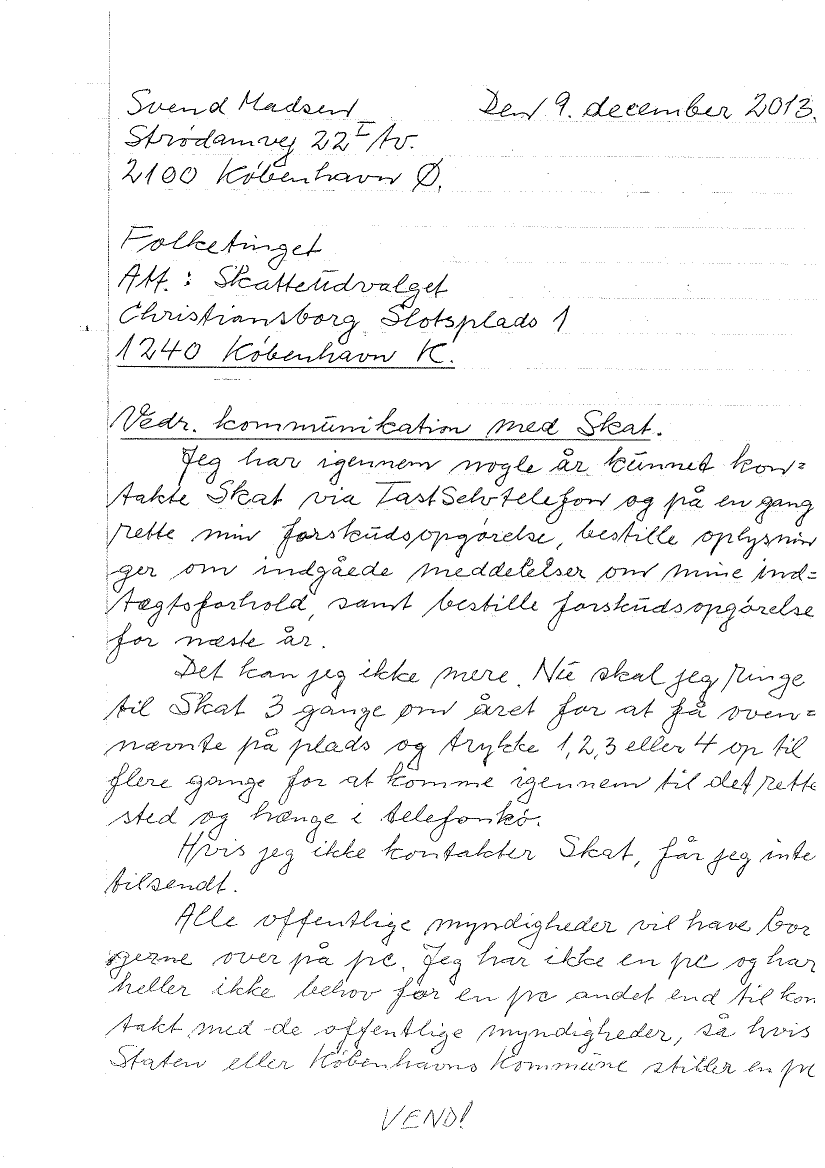 Svend Madsen Den 9. december 2013.
Strødamvej 22 I tv.
2100 København Ø.
Folketinget
Att. : Skatteudvalget
Christiansborg Slotsplads 1
1240 København K.
Vedr. kommunikation med Skat.
Jeg har igennem nogle år kunnet kon=
takte Skat via TastSelvtelefon og på en gang
rette min forskudsopgørelse, bestille oplysnin
ger om indgåede meddelelser om mine ind=
tægtsforhold, samt bestille forskudsopgørelse
for næste år.
Det kan jeg ikke mere. Nu skal jeg ringe
til Skat 3 gange om året for at få oven=
nævnte på plads og trykke 1, 2, 3 eller 4 op til
flere gange for at komme igennem til det rette
sted og hænge i telefonkø.
Hvis jeg ikke kontakter Skat, får jeg inte
tilsendt.
Alle offentlige myndigheder vil have bor
gerne over på pc. Jeg har ikke en pc og har
heller ikke behov for en pc andet end til kon
takt med de offentlige myndigheder, så hvis
Staten eller Københavns Kommune stiller en pc
VEND!